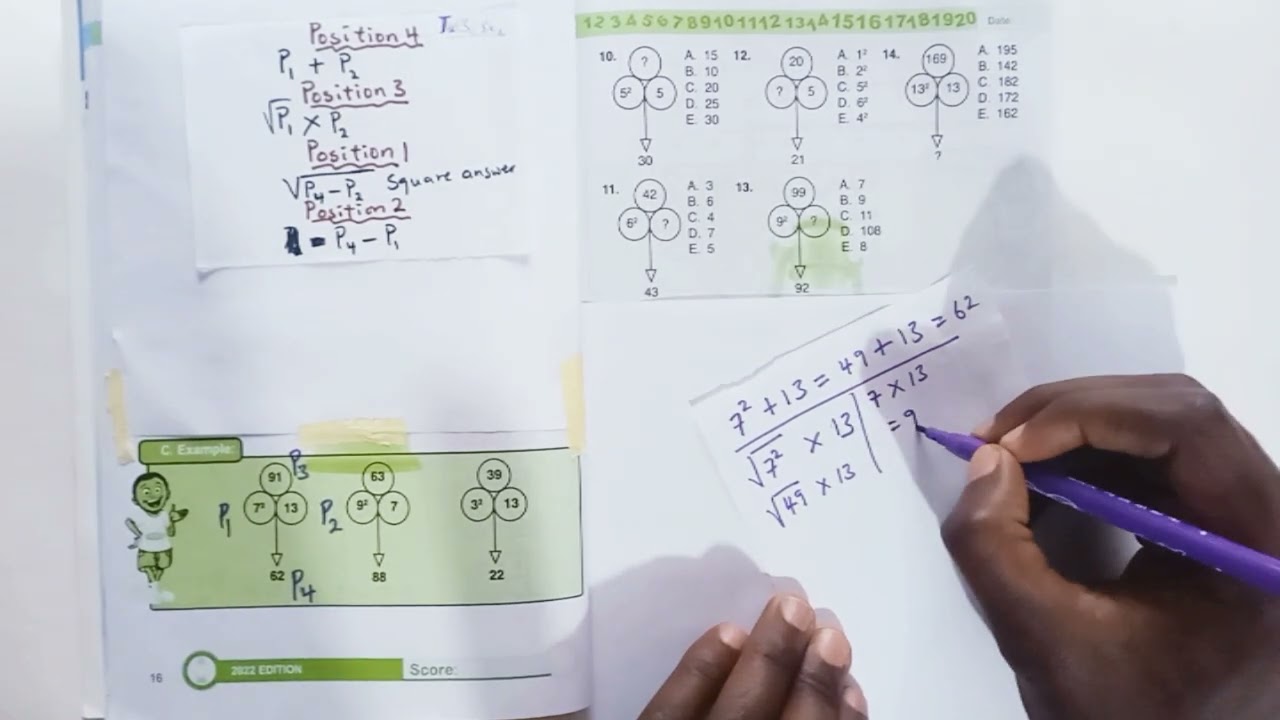 Position 4
P₁ + P₂
Position 3
√P₁ × P₂
Position 1
√P₄ – P₂ Square answer
Position 2
= P₄ – P₁
C. Example:
P₃
91
P₁
7²
13
62
P₄
P₂
63
9²
7
88
39
3²
13
22
16
2022 EDITION
Score:
1 2 3 4 5 6 7 8 9 10 11 12 13 14 15 16 17 18 19 20
Date:
10.
?
5²
5
30
A. 15
B. 10
C. 20
D. 25
E. 30
12.
20
?
5
21
A. 1²
B. 2²
C. 5²
D. 6²
E. 4²
14.
169
13²
13
?
A. 195
B. 142
C. 182
D. 172
E. 162
11.
42
6²
?
43
A. 3
B. 6
C. 4
D. 7
E. 5
13.
99
9²
?
92
A. 7
B. 9
C. 11
D. 108
E. 8
7² + 13 = 49 + 13 = 62
√7² × 13
√49 × 13
7 × 13
= 9